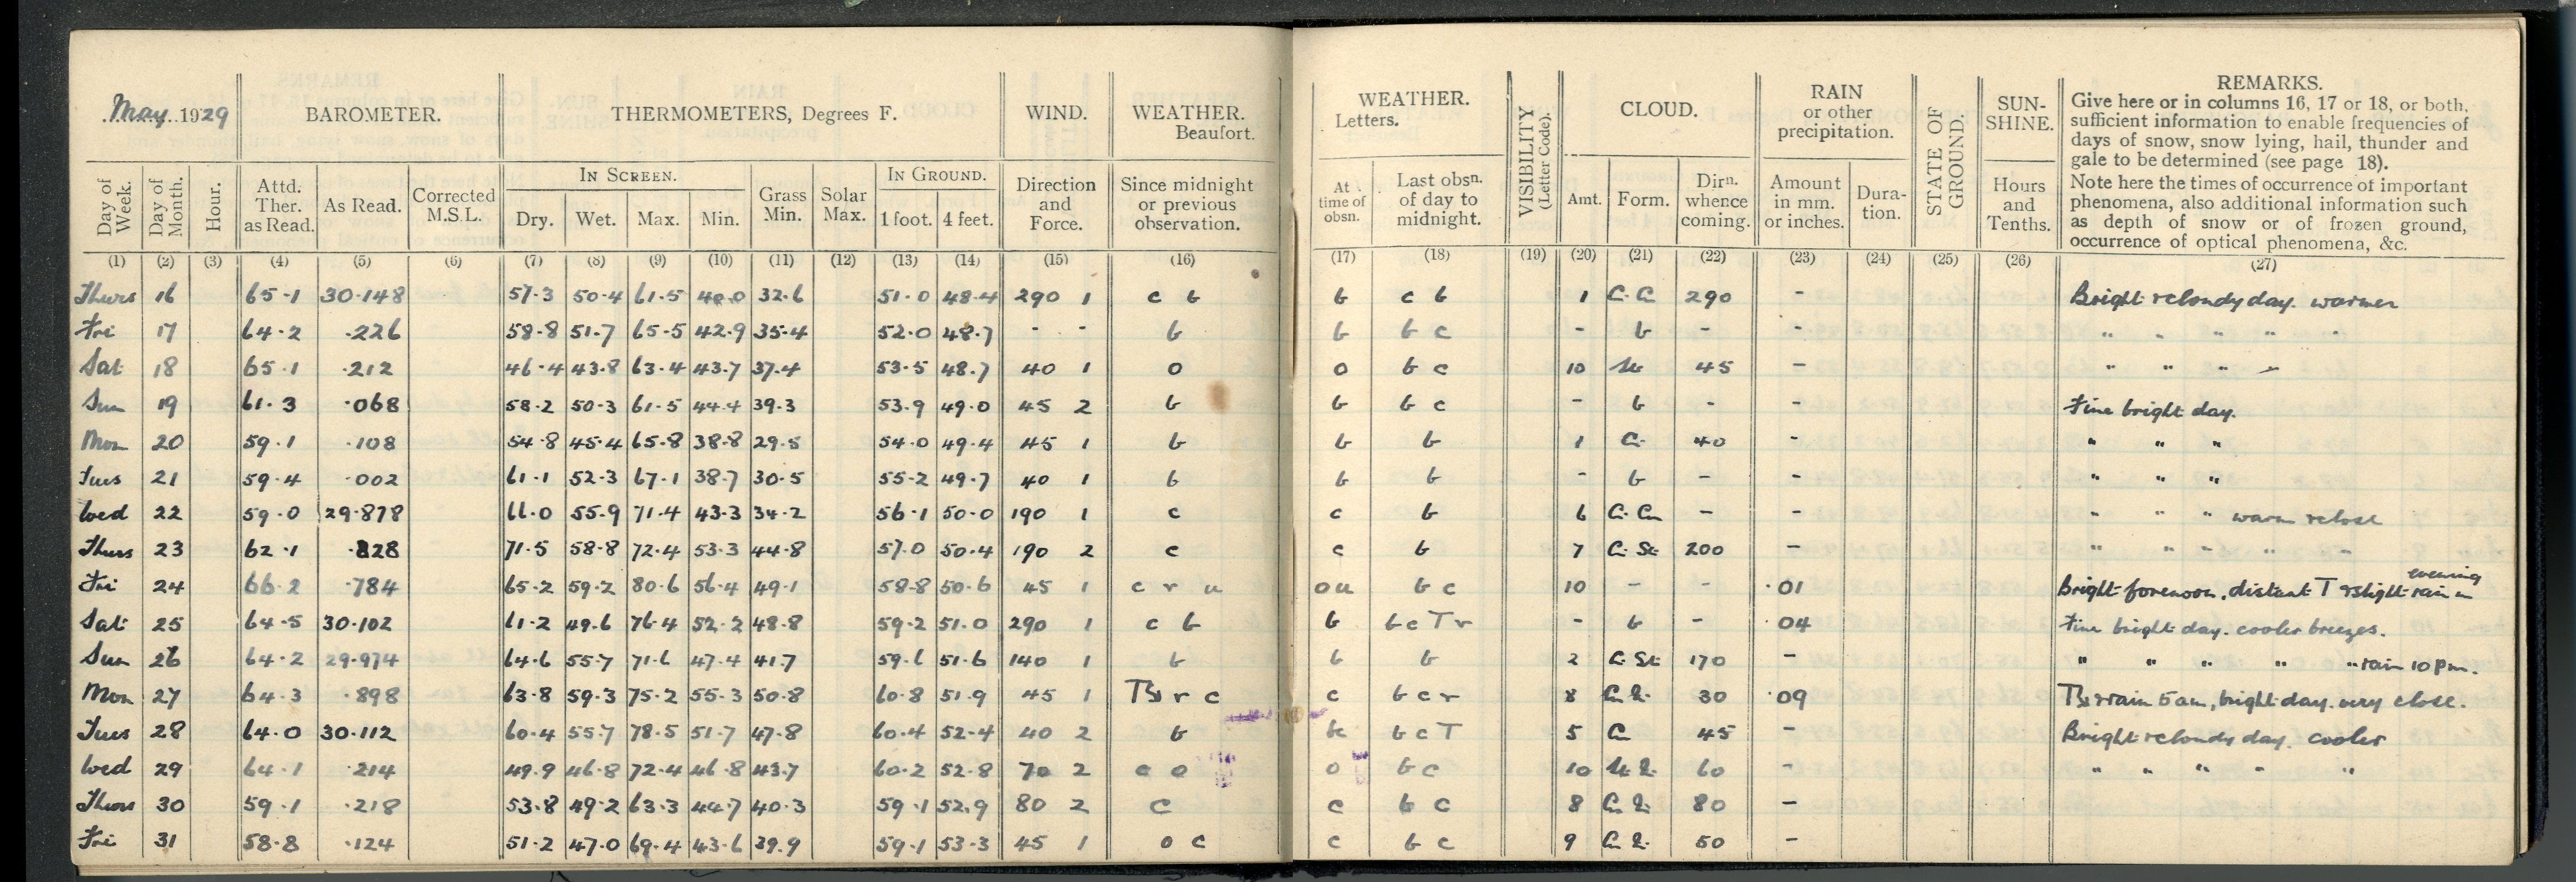 May 1929 BAROMETER. THERMOMETERS, Degrees F. WIND. WEATHER. Beaufort. WEATHER. Letters. VISIBILITY (Letter Code). CLOUD. RAIN or other precipitation. STATE OF GROUND. SUN-SHINE. REMARKS.
Give here or in columns 16, 17 or 18, or both,
sufficient information to enable frequencies of
days of snow, snow lying, hail, thunder and
gale to be determined (see page 18).
Note here the times of occurrence of important
phenomena, also additional information such
as depth of snow or of frozen ground,
occurrence of optical phenomena, &c.
Day of Week. Day of Month. Hour. Attd. Ther. as Read. As Read. Corrected M.S.L. IN SCREEN. Dry. Wet. Max. Min. Grass Min. Solar Max. IN GROUND. 1 foot. 4 feet. Direction and Force. Since midnight or previous observation. At time of obsn. Last obsn. of day to midnight. Amt. Form. Dirn. whence coming. Amount in mm. or inches. Dura-tion. Hours and Tenths.
(1) (2) (3) (4) (5) (6) (7) (8) (9) (10) (11) (12) (13) (14) (15) (16) (17) (18) (19) (20) (21) (22) (23) (24) (25) (26) (27)
Thurs 16 65.1 30.148 57.3 50.4 61.5 40.0 32.6 51.0 48.4 290 1 c b b c b 1 C.C. 290 - Bright & cloudy day. warmer
Fri 17 64.2 .226 58.8 51.7 65.5 42.9 35.4 52.0 48.7 - - b b b c - b - - " " " " "
Sat 18 65.1 .212 46.4 43.8 63.4 43.7 37.4 53.5 48.7 40 1 o o b c 10 St 45 - " " " "
Sun 19 61.3 .068 58.2 50.3 61.5 44.4 39.3 53.9 49.0 45 2 b b b c - b - - Fine bright day.
Mon 20 59.1 .108 54.8 45.4 65.8 38.8 29.5 54.0 49.4 45 1 b b b 1 Ci 40 - " " "
Tues 21 59.4 .002 61.1 52.3 67.1 38.7 30.5 55.2 49.7 40 1 b b b - b - - " " "
Wed 22 59.0 29.878 66.0 55.9 71.4 43.3 34.2 56.1 50.0 190 1 c c b 6 Ci. Cu - - " " " warm & close
Thurs 23 62.1 .828 71.5 58.8 72.4 53.3 44.8 57.0 50.4 190 2 c c b 7 Ci. St. 200 - " " " " " "
Fri 24 66.2 .784 65.2 59.2 80.6 56.4 49.1 58.8 50.6 45 1 c r u o u b c 10 - - .01 Bright forenoon, distant T & slight rain in evening
Sat 25 64.5 30.102 61.2 49.6 76.4 52.2 48.8 59.2 51.0 290 1 c b b b c T r - b - .04 Fine bright day. cooler breezes.
Sun 26 64.2 29.974 64.6 55.7 71.6 47.4 41.7 59.6 51.6 140 1 b b b 2 Ci. St. 170 - " " " " " rain 10 pm.
Mon 27 64.3 .898 63.8 59.3 75.2 55.3 50.8 60.8 51.9 45 1 r c c b c r 8 30 .09 & rain 5 am, bright day. very close.
Tues 28 64.0 30.112 60.4 55.7 78.5 51.7 47.8 60.4 52.4 40 2 b bc b c T 5 45 - Bright & cloudy day. cooler
Wed 29 64.1 .214 49.9 46.8 72.4 46.8 43.7 60.2 52.8 70 2 c o o b c 10 60 - " " " " "
Thurs 30 59.1 .218 53.8 49.2 63.3 44.7 40.3 59.1 52.9 80 2 c c b c 8 80 -
Fri 31 58.8 .124 51.2 47.0 69.4 43.6 39.9 59.1 53.3 45 1 o c c b c 9 50 -